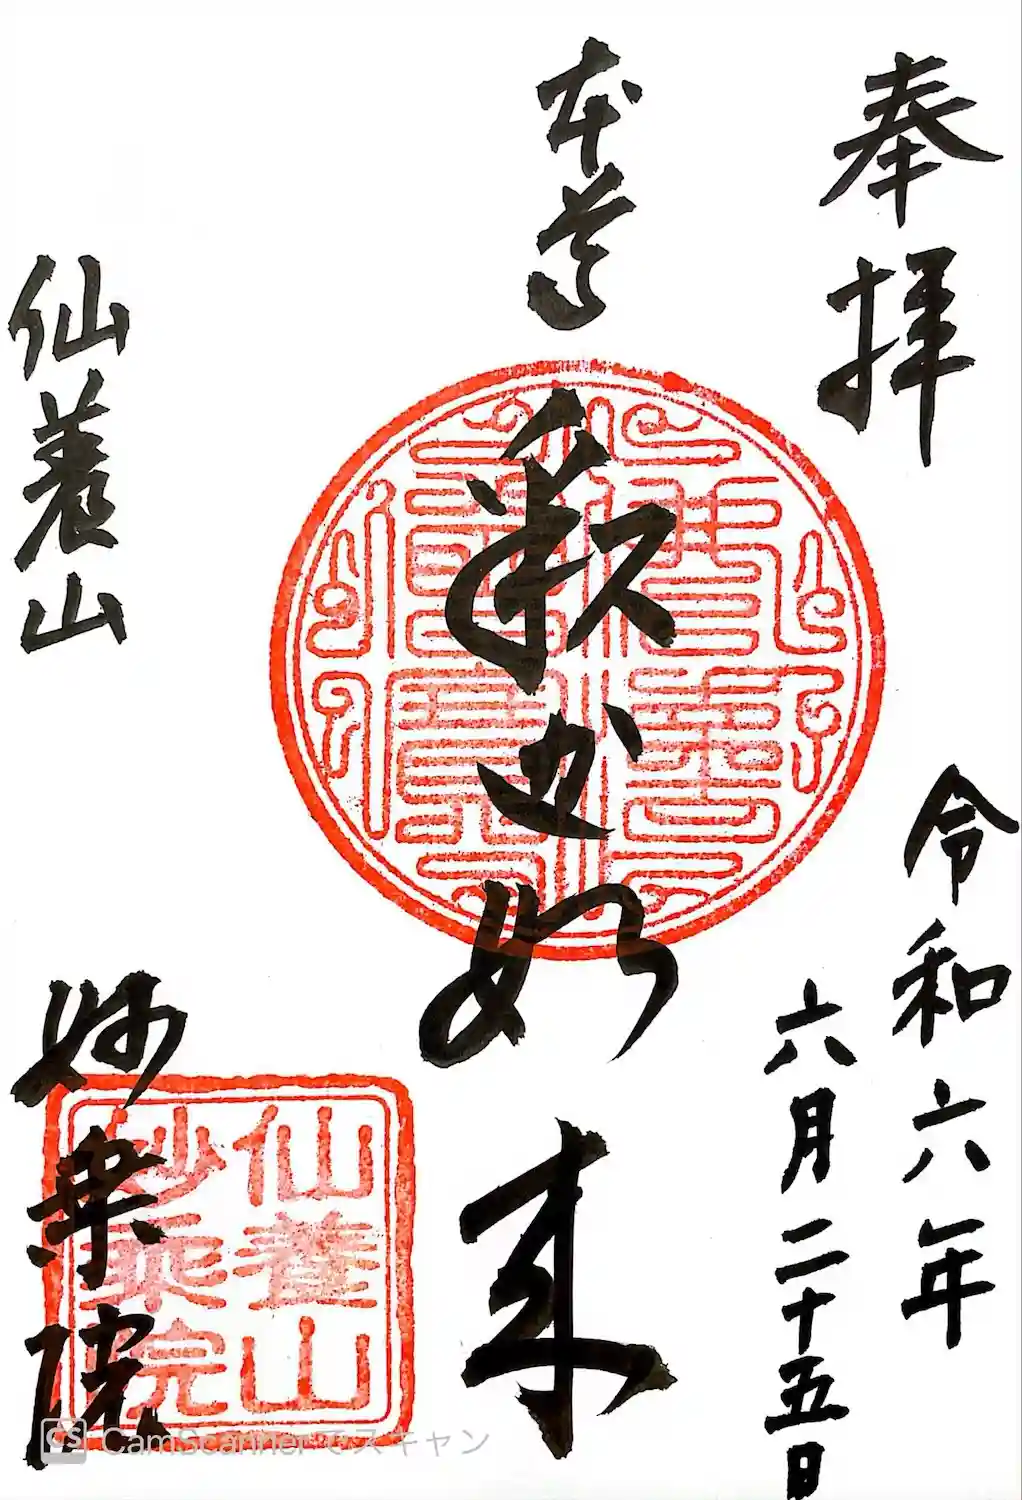 奉拝
令和六年
六月二十五日
本尊
釈迦如来
仙養山
妙乗院
仙養山
妙乗院
CS CamScannerでスキャン